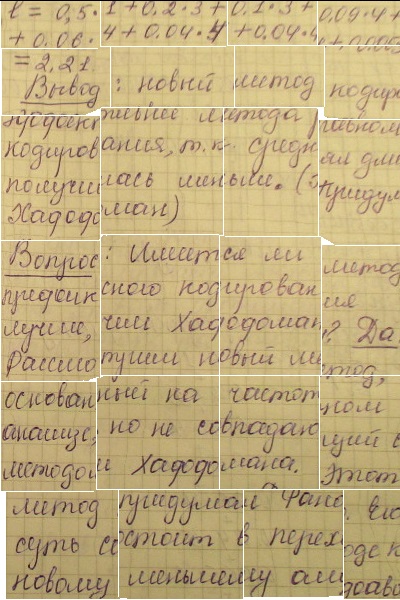 l = 0,5·1 + 0,2·3 + 0,1·3 + 0,09·4 +
+ 0,06·4 + 0,04·4 + 0,04·4
= 2,21.
Вывод: новый метод кодиро
эффективнее метода равном
кодирования, т.к. средняя дли
получилась меньше. (Придум
Хаффман)
Вопрос: Имеется ли метод
префиксного кодирования
лучше, чем Хаффман? Да
Рассмотрим новый метод,
основанный на частотном
анализе, но не совпадающий с
методом Хаффмана. Этот
метод придумал Фано. Его
суть состоит в переходе к
новому меньшему алфав